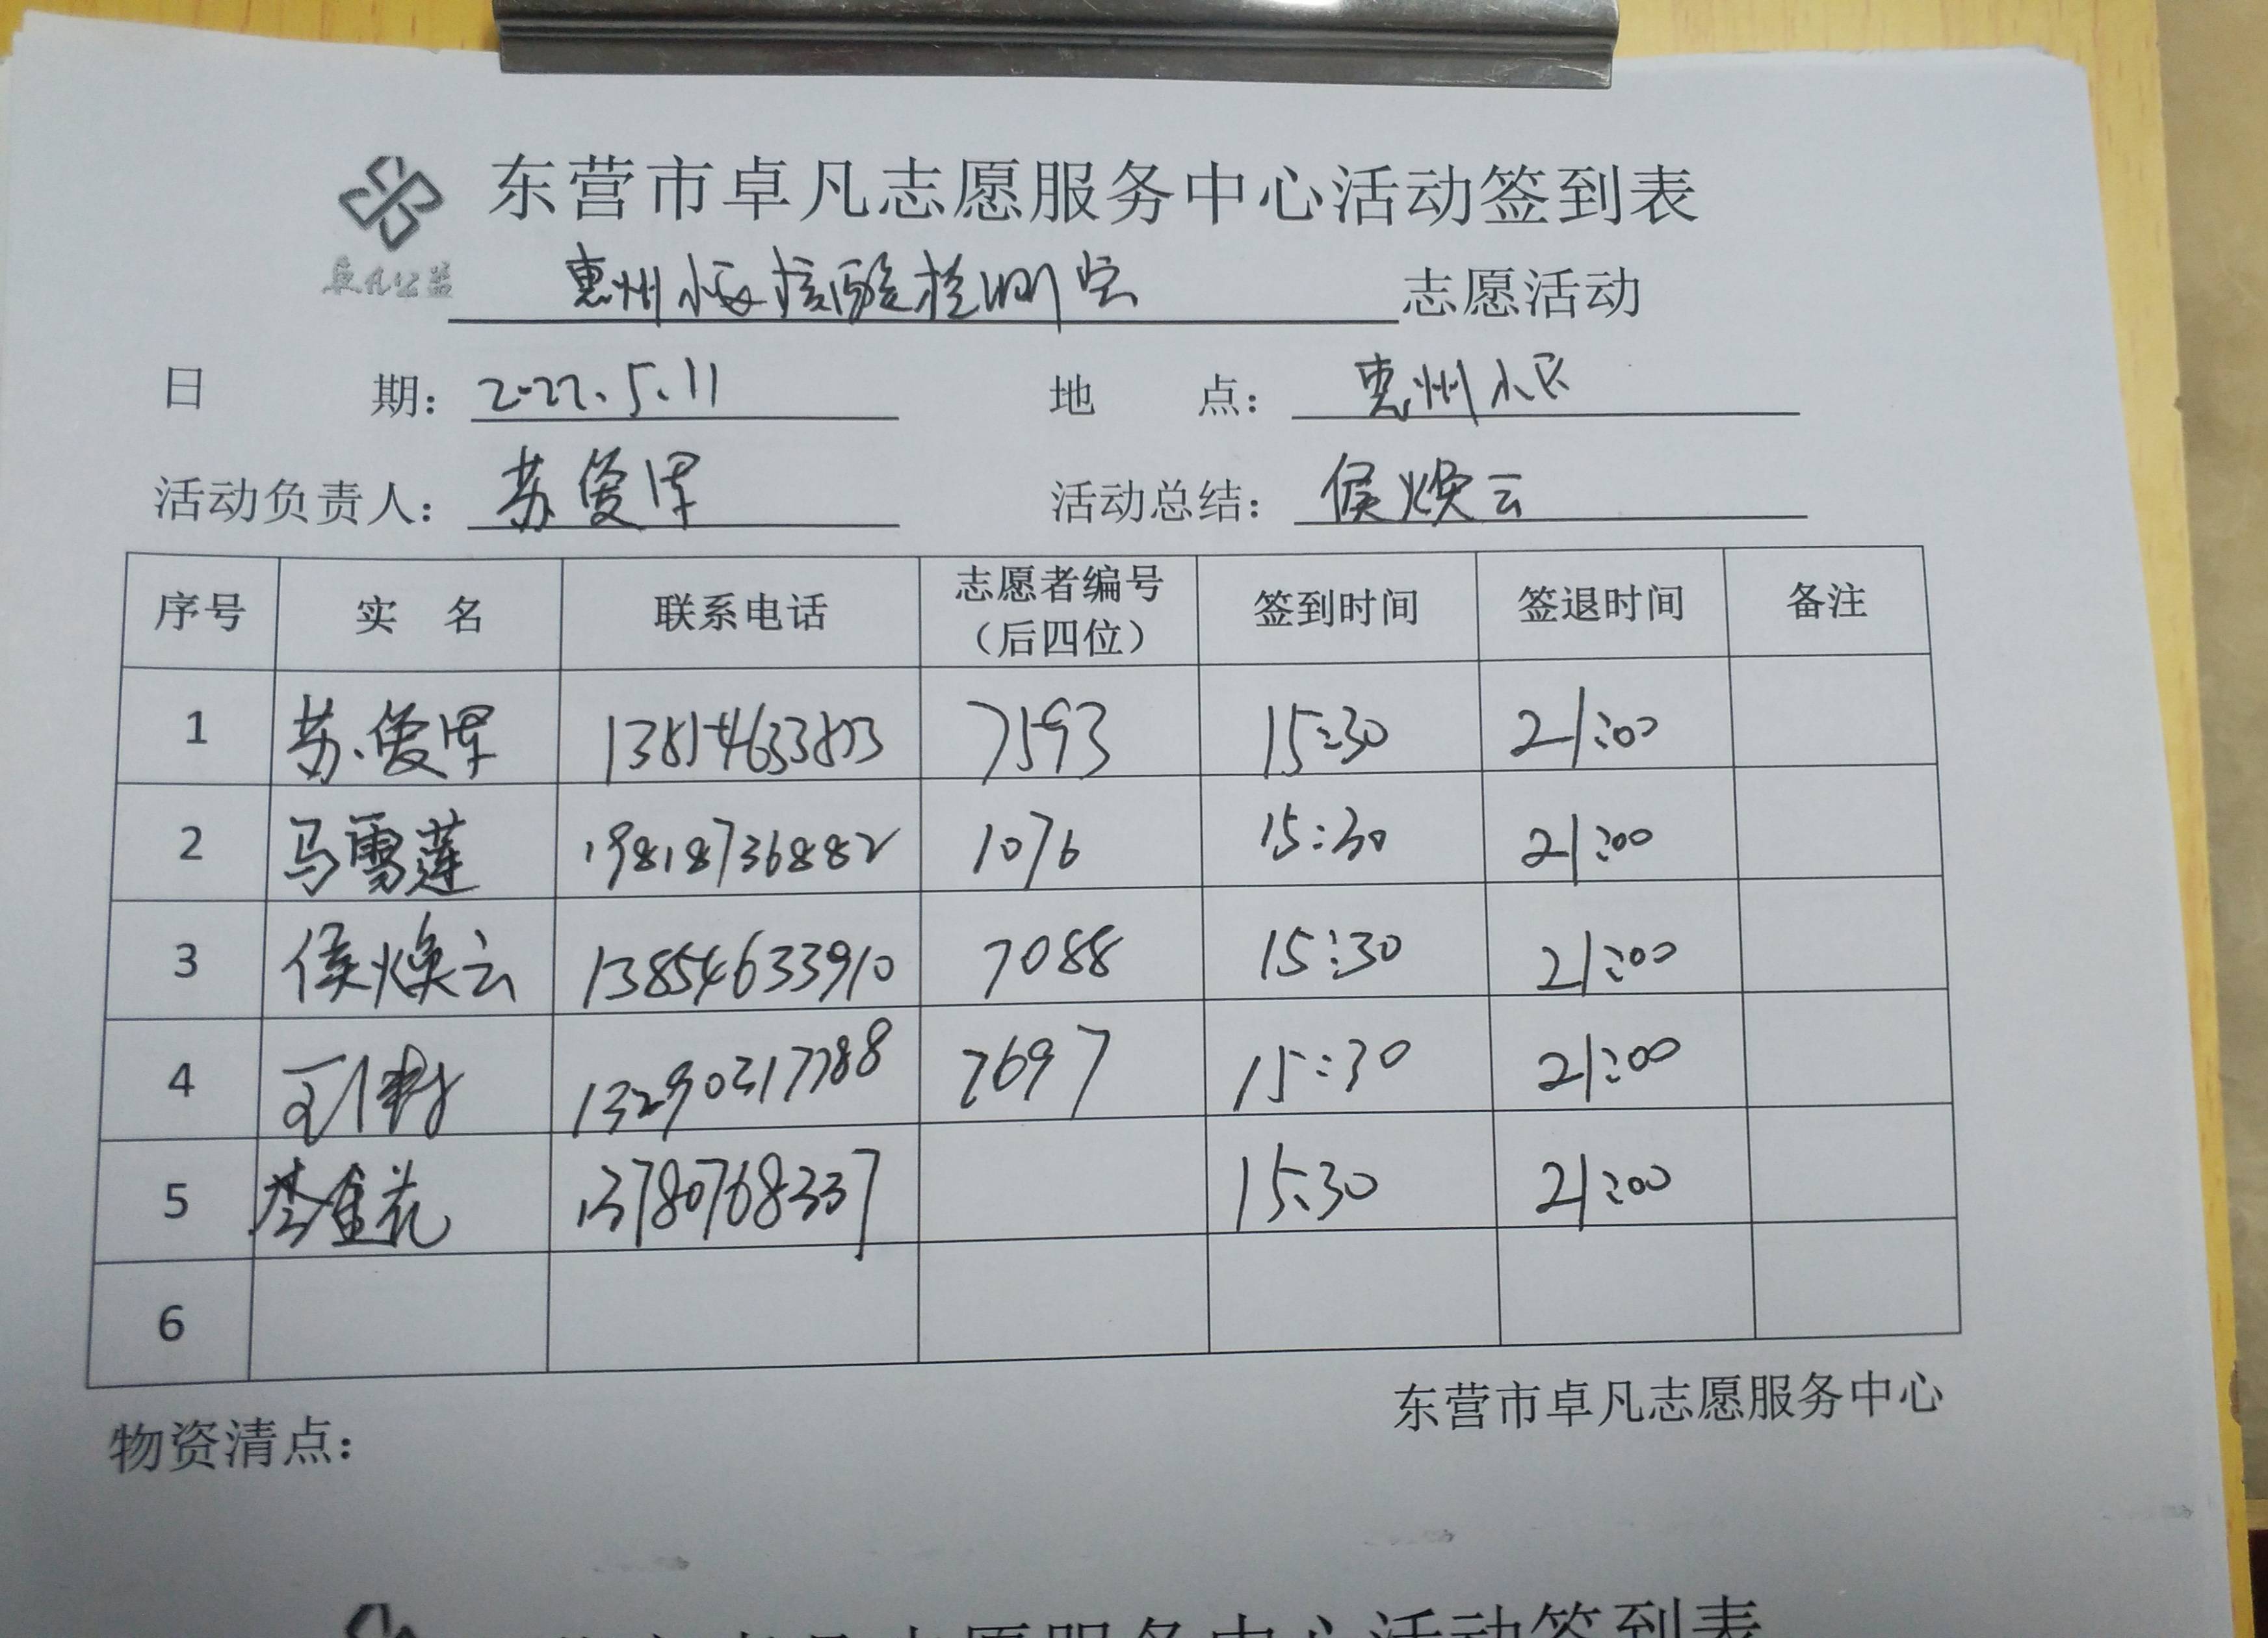 东营市卓凡志愿服务中心活动签到表
卓凡公益
惠州小区核酸检测室 志愿活动
日 期: 2022.5.11 地 点: 惠州小区
活动负责人: 苏俊泽 活动总结: 侯焕云
序号 实 名 联系电话 志愿者编号(后四位) 签到时间 签退时间 备注
1 苏俊泽 7593 15:30 21:00
2 马雪莲 19818736882 1076 15:30 21:00
3 侯焕云 13854633910 7088 15:30 21:00
4 13290317788 7697 15:30 21:00
5 李金花 13780768337 15:30 21:00
6
东营市卓凡志愿服务中心
物资清点:
东营市卓凡志愿服务中心活动签到表